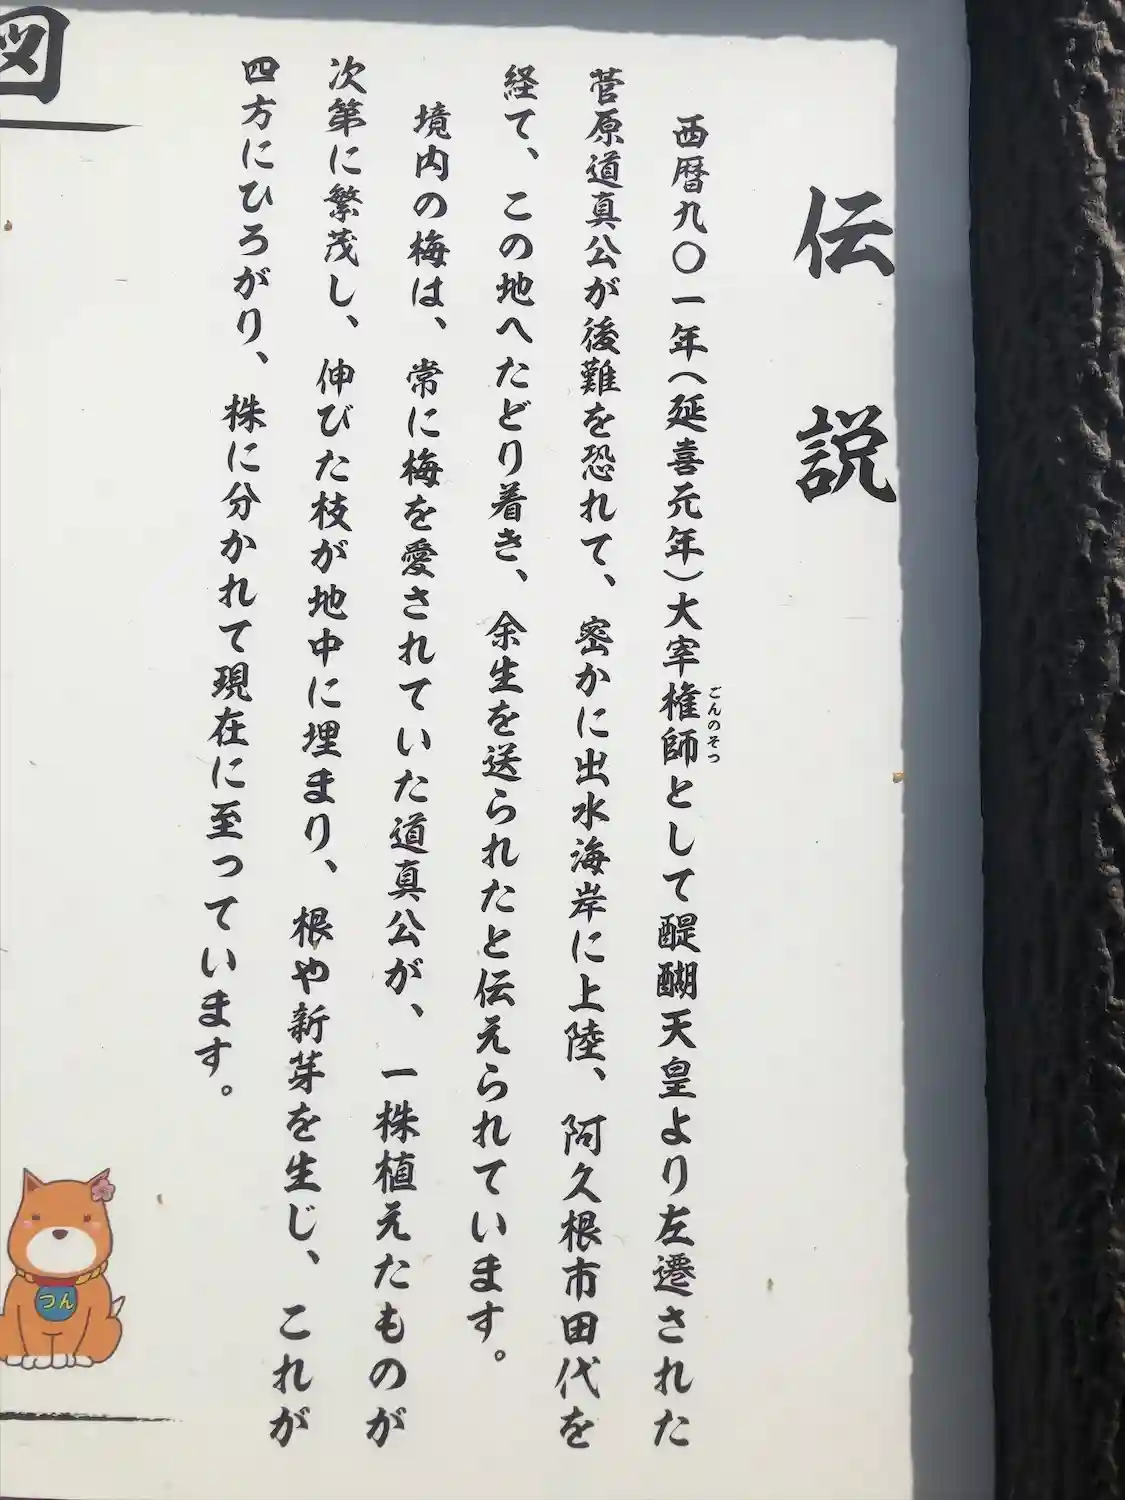 伝説
西暦九〇一年(延喜元年)大宰権師として醍醐天皇より左遷された
ごんのそつ
菅原道真公が後難を恐れて、密かに出水海岸に上陸、阿久根市田代を
経て、この地へたどり着き、余生を送られたと伝えられています。
境内の梅は、常に梅を愛されていた道真公が、一株植えたものが
次第に繁茂し、伸びた枝が地中に埋まり、根や新芽を生じ、これが
四方にひろがり、株に分かれて現在に至っています。
図
つん